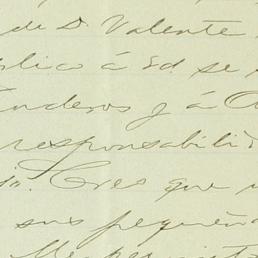 de D. Valente
plico á Ud. se
nderos y á
responsabili
Crees que
sus pequeña